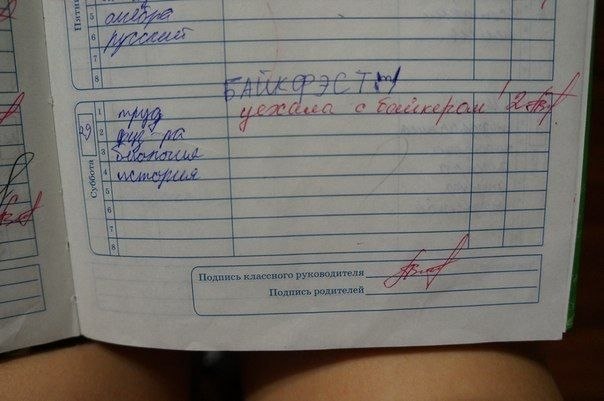 Пятни
5 алгебра
6 русский
7
8
БАЙКФЭСТ
Суббота
29
1 труд
уехала с байкером! 2
2 физ-ра
3 биология
4 история
5
6
7
8
Подпись классного руководителя
Подпись родителей